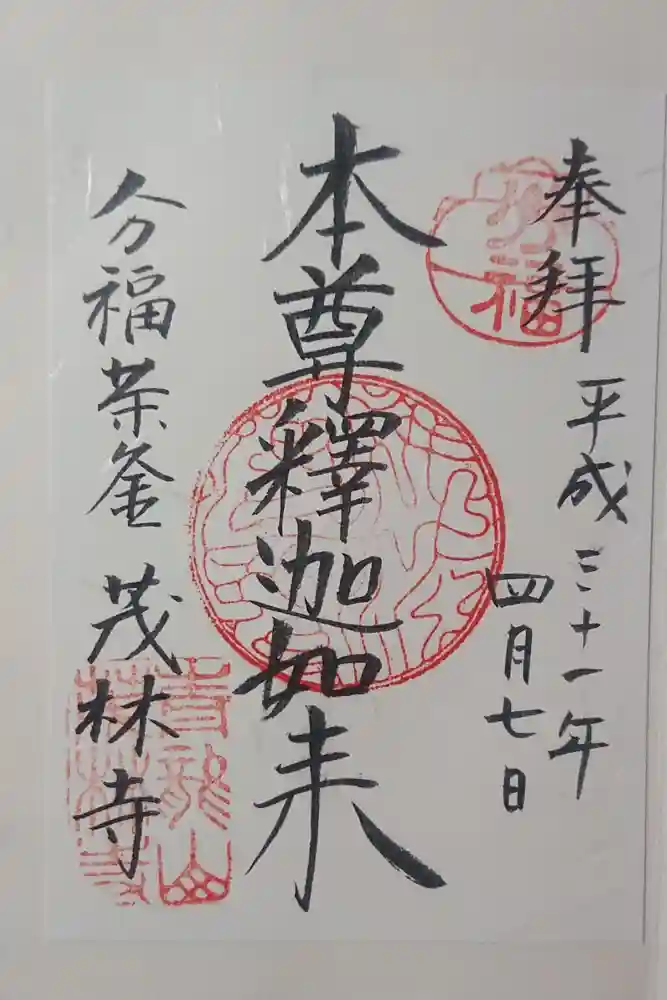 奉拝
平成三十一年
四月七日
本尊釋迦如来
分福茶釜 茂林寺
青龍山
茂林寺